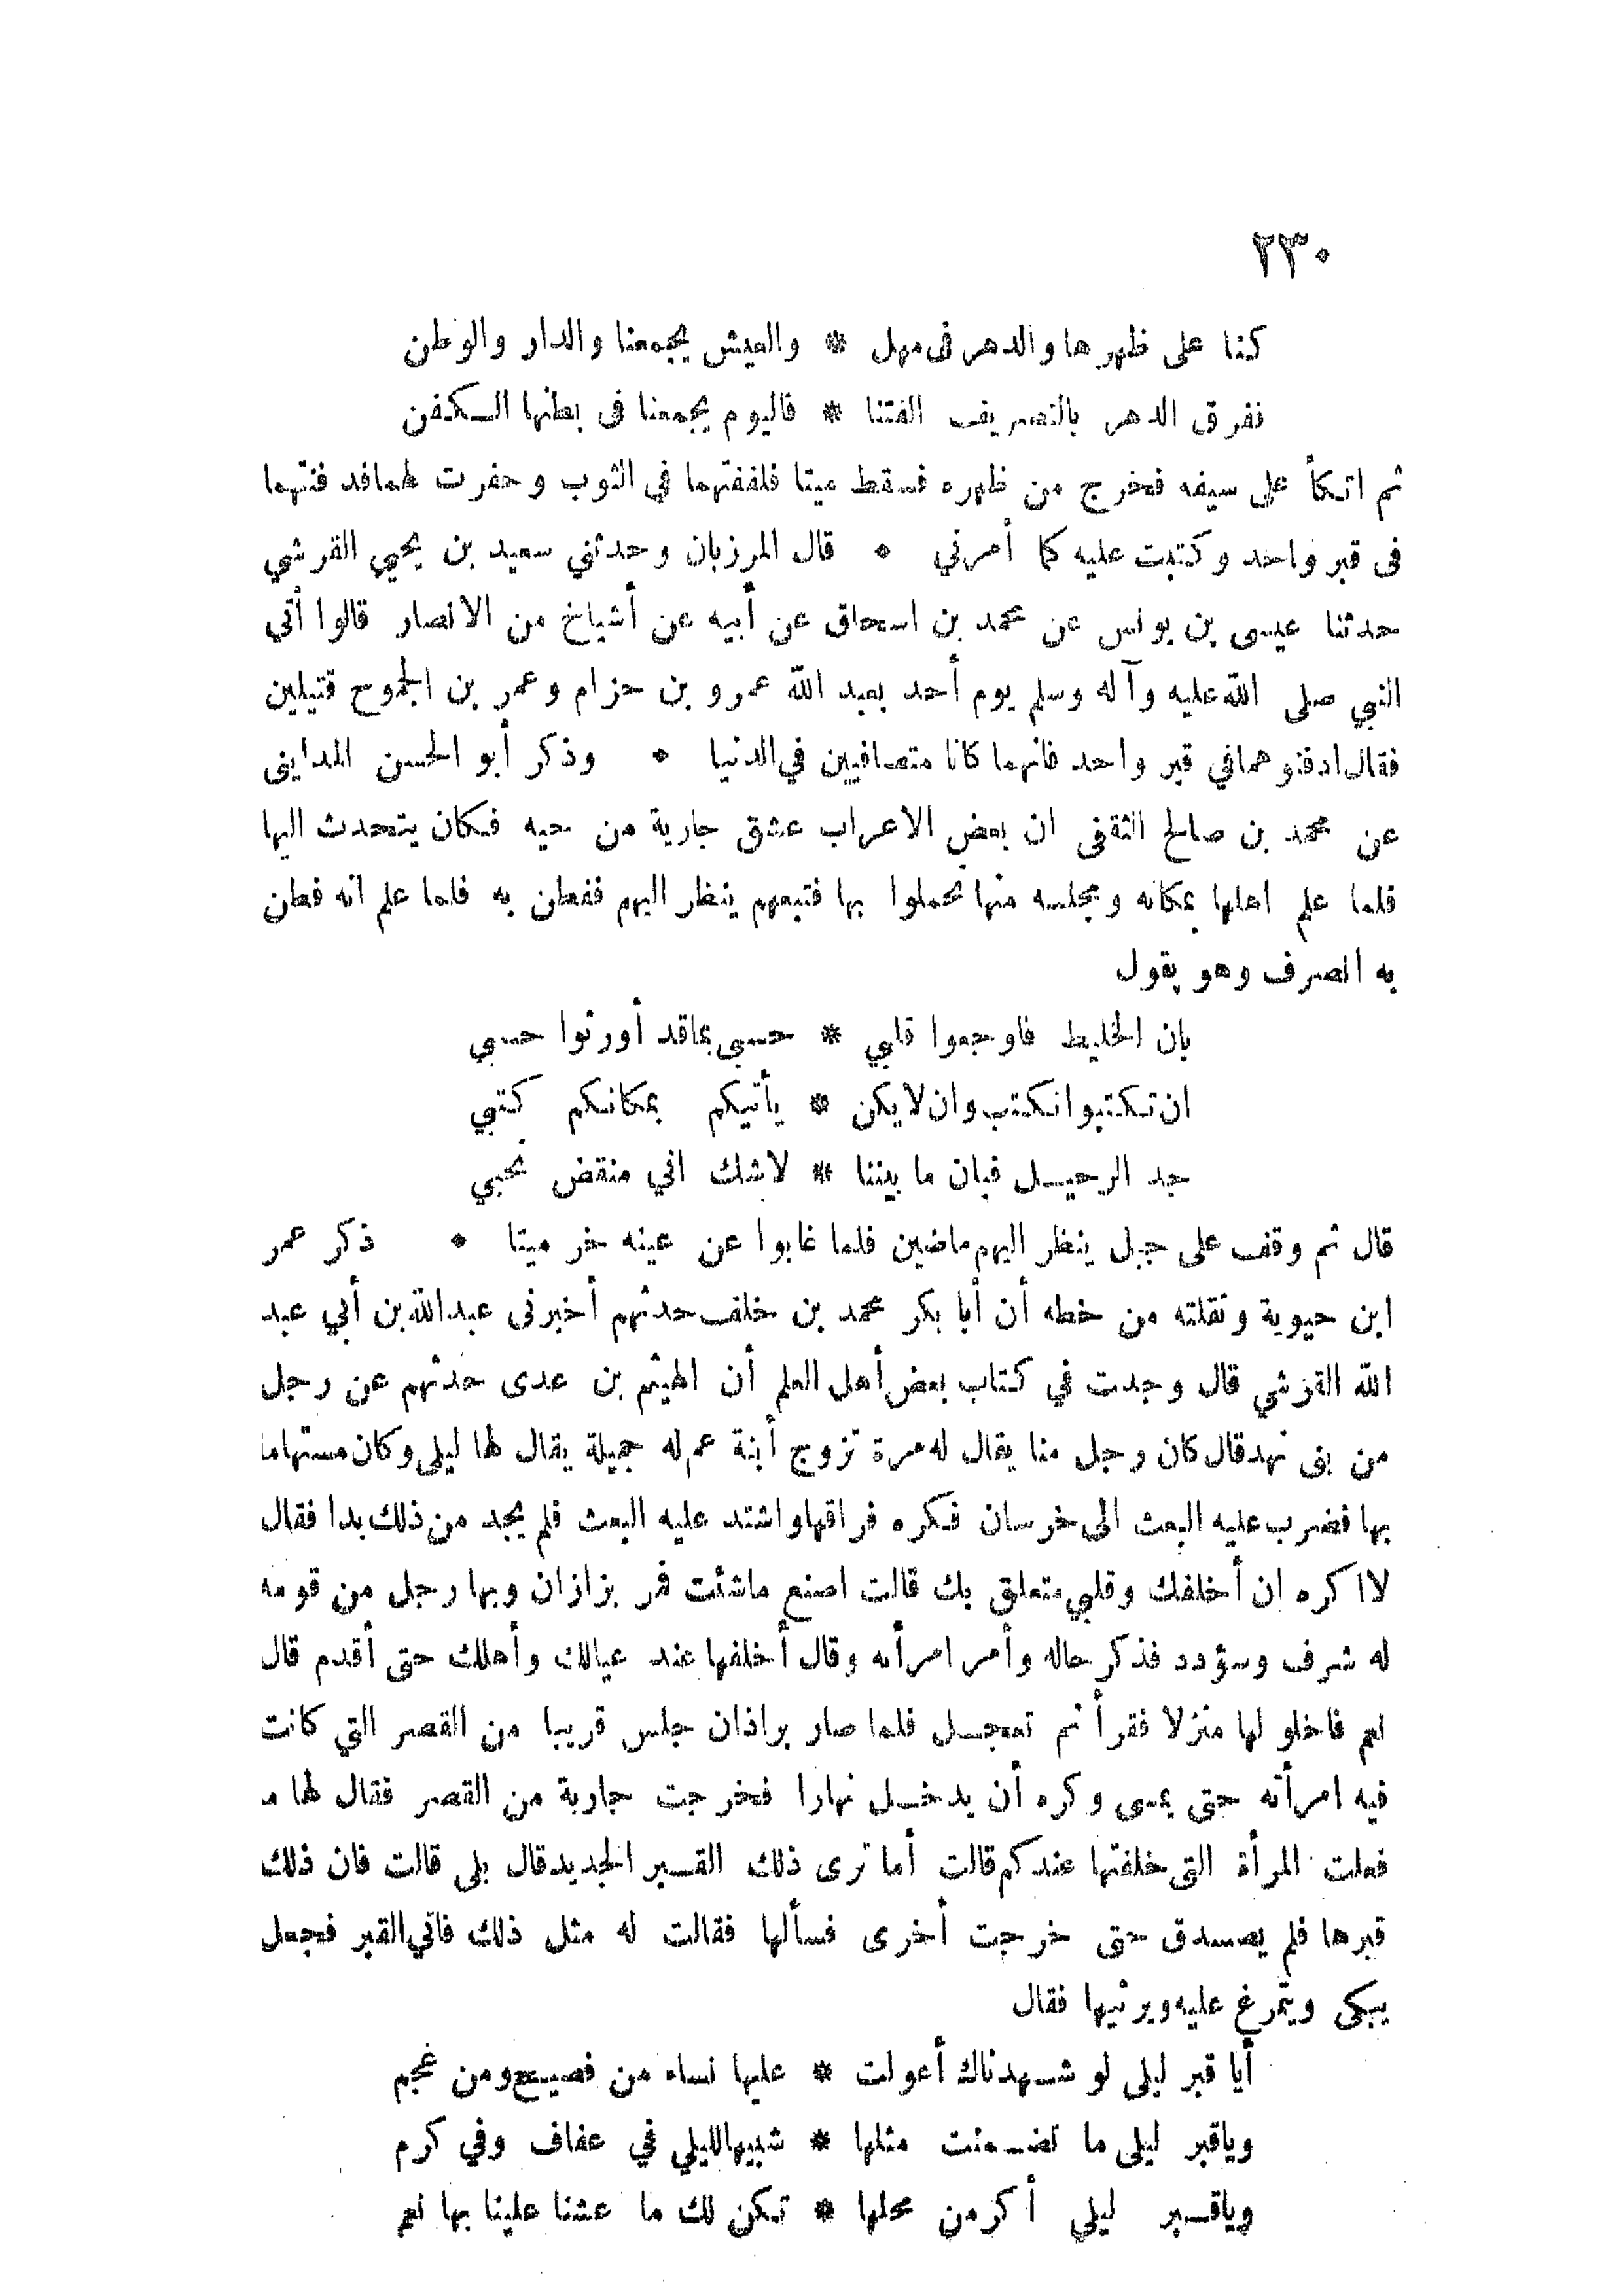 ٢٣٠
كنا على ظهرها والدهر فى مهل * والعيش يجمعنا والدار والوطن
نفرق الدهر بالتصريف الفتنا * فاليوم يجمعنا فى بطنها الكفن
ثم اتكأ على سيفه فخرج من ظهره فسقط ميتا فلففتهما في الثوب وحفرت لهما فد فنتهما
فى قبر واحد وكتبت عليه كما أمرني * قال المرزبان وحدثني سعيد بن يحيي القرشي
حدثنا عيسى بن يونس عن محمد بن اسحاق عن أبيه عن أشياخ من الانصار قالوا أتي
النبي صلى الله عليه وآله وسلم يوم أحد بعبد الله عمرو بن حزام وعمر بن الجموح قتيلين
فقال ادفنوهما في قبر واحد فانهما كانا متصافيين في الدنيا * وذكر أبو الحسن المداينى
عن محمد بن صالح الثقفى ان بعض الاعراب عشق جارية من حيه فكان يتحدث اليها
فلما علم اهلها بمكانه ومجلسه منها تحملوا بها فتبعهم ينظر اليهم ففطن به فلما علم انه فطن
به انصرف وهو يقول
بان الخليط فاوجعوا قلبي * حسبى بما قد أورثوا حسبي
ان تكتبوا نكتب وان لا يكن * يأتيكم بمكانكم كتبي
جد الرحيل فبان ما بيننا * لاشك اني منقض نحبي
قال ثم وقف على جبل ينظر اليهم ماضين فلما غابوا عن عينه خر ميتا * ذكر عمر
ابن حيوية ونقلته من خطه أن أبا بكر محمد بن خلف حدثهم أخبرنى عبد الله بن أبي عبد
الله القرشي قال وجدت في كتاب بعض أهل العلم أن الهيثم بن عدى حدثهم عن رجل
من بنى نهد قال كان رجل منا يقال له مرة تزوج أبنة عم له جميلة يقال لها ليلى وكان مستهاما
بها فضرب عليه البعث الى خرسان فكره فراقها واشتد عليه البعث فلم يجد من ذلك بدا فقال
لا اكره ان أخلفك وقلبي متعلق بك قالت اصنع ماشئت فمر بزازان وبها رجل من قومه
له شرف وسؤدد فذكر حاله وأمر امرأته وقال أخلفها عند عيالك وأهلك حتى أقدم قال
نعم فاخلو لها منزلا فقرأ ثم تعجل فلما صار براذان جلس قريبا من القصر التي كانت
فيه امرأته حتى يمسى وكره أن يدخل نهارا فخرجت جارية من القصر فقال لها مـ
فعلت المرأة التى خلفتها عندكم قالت أما ترى ذلك القبر الجديد قال بلى قالت فان ذلك
قبرها فلم يصدق حتى خرجت أخرى فسألها فقالت له مثل ذلك فاتي القبر فجعل
يبكى ويتمرغ عليه ويرثيها فقال
أيا قبر ليلى لو شهدناك أعولت * عليها نساء من فصيح ومن عجم
وياقبر ليلى ما تضمنت مثلها * شبيها لليلي في عفاف وفي كرم
وياقبر ليلي أكرمن محلها * تكن لك ما عشنا علينا بها نعم